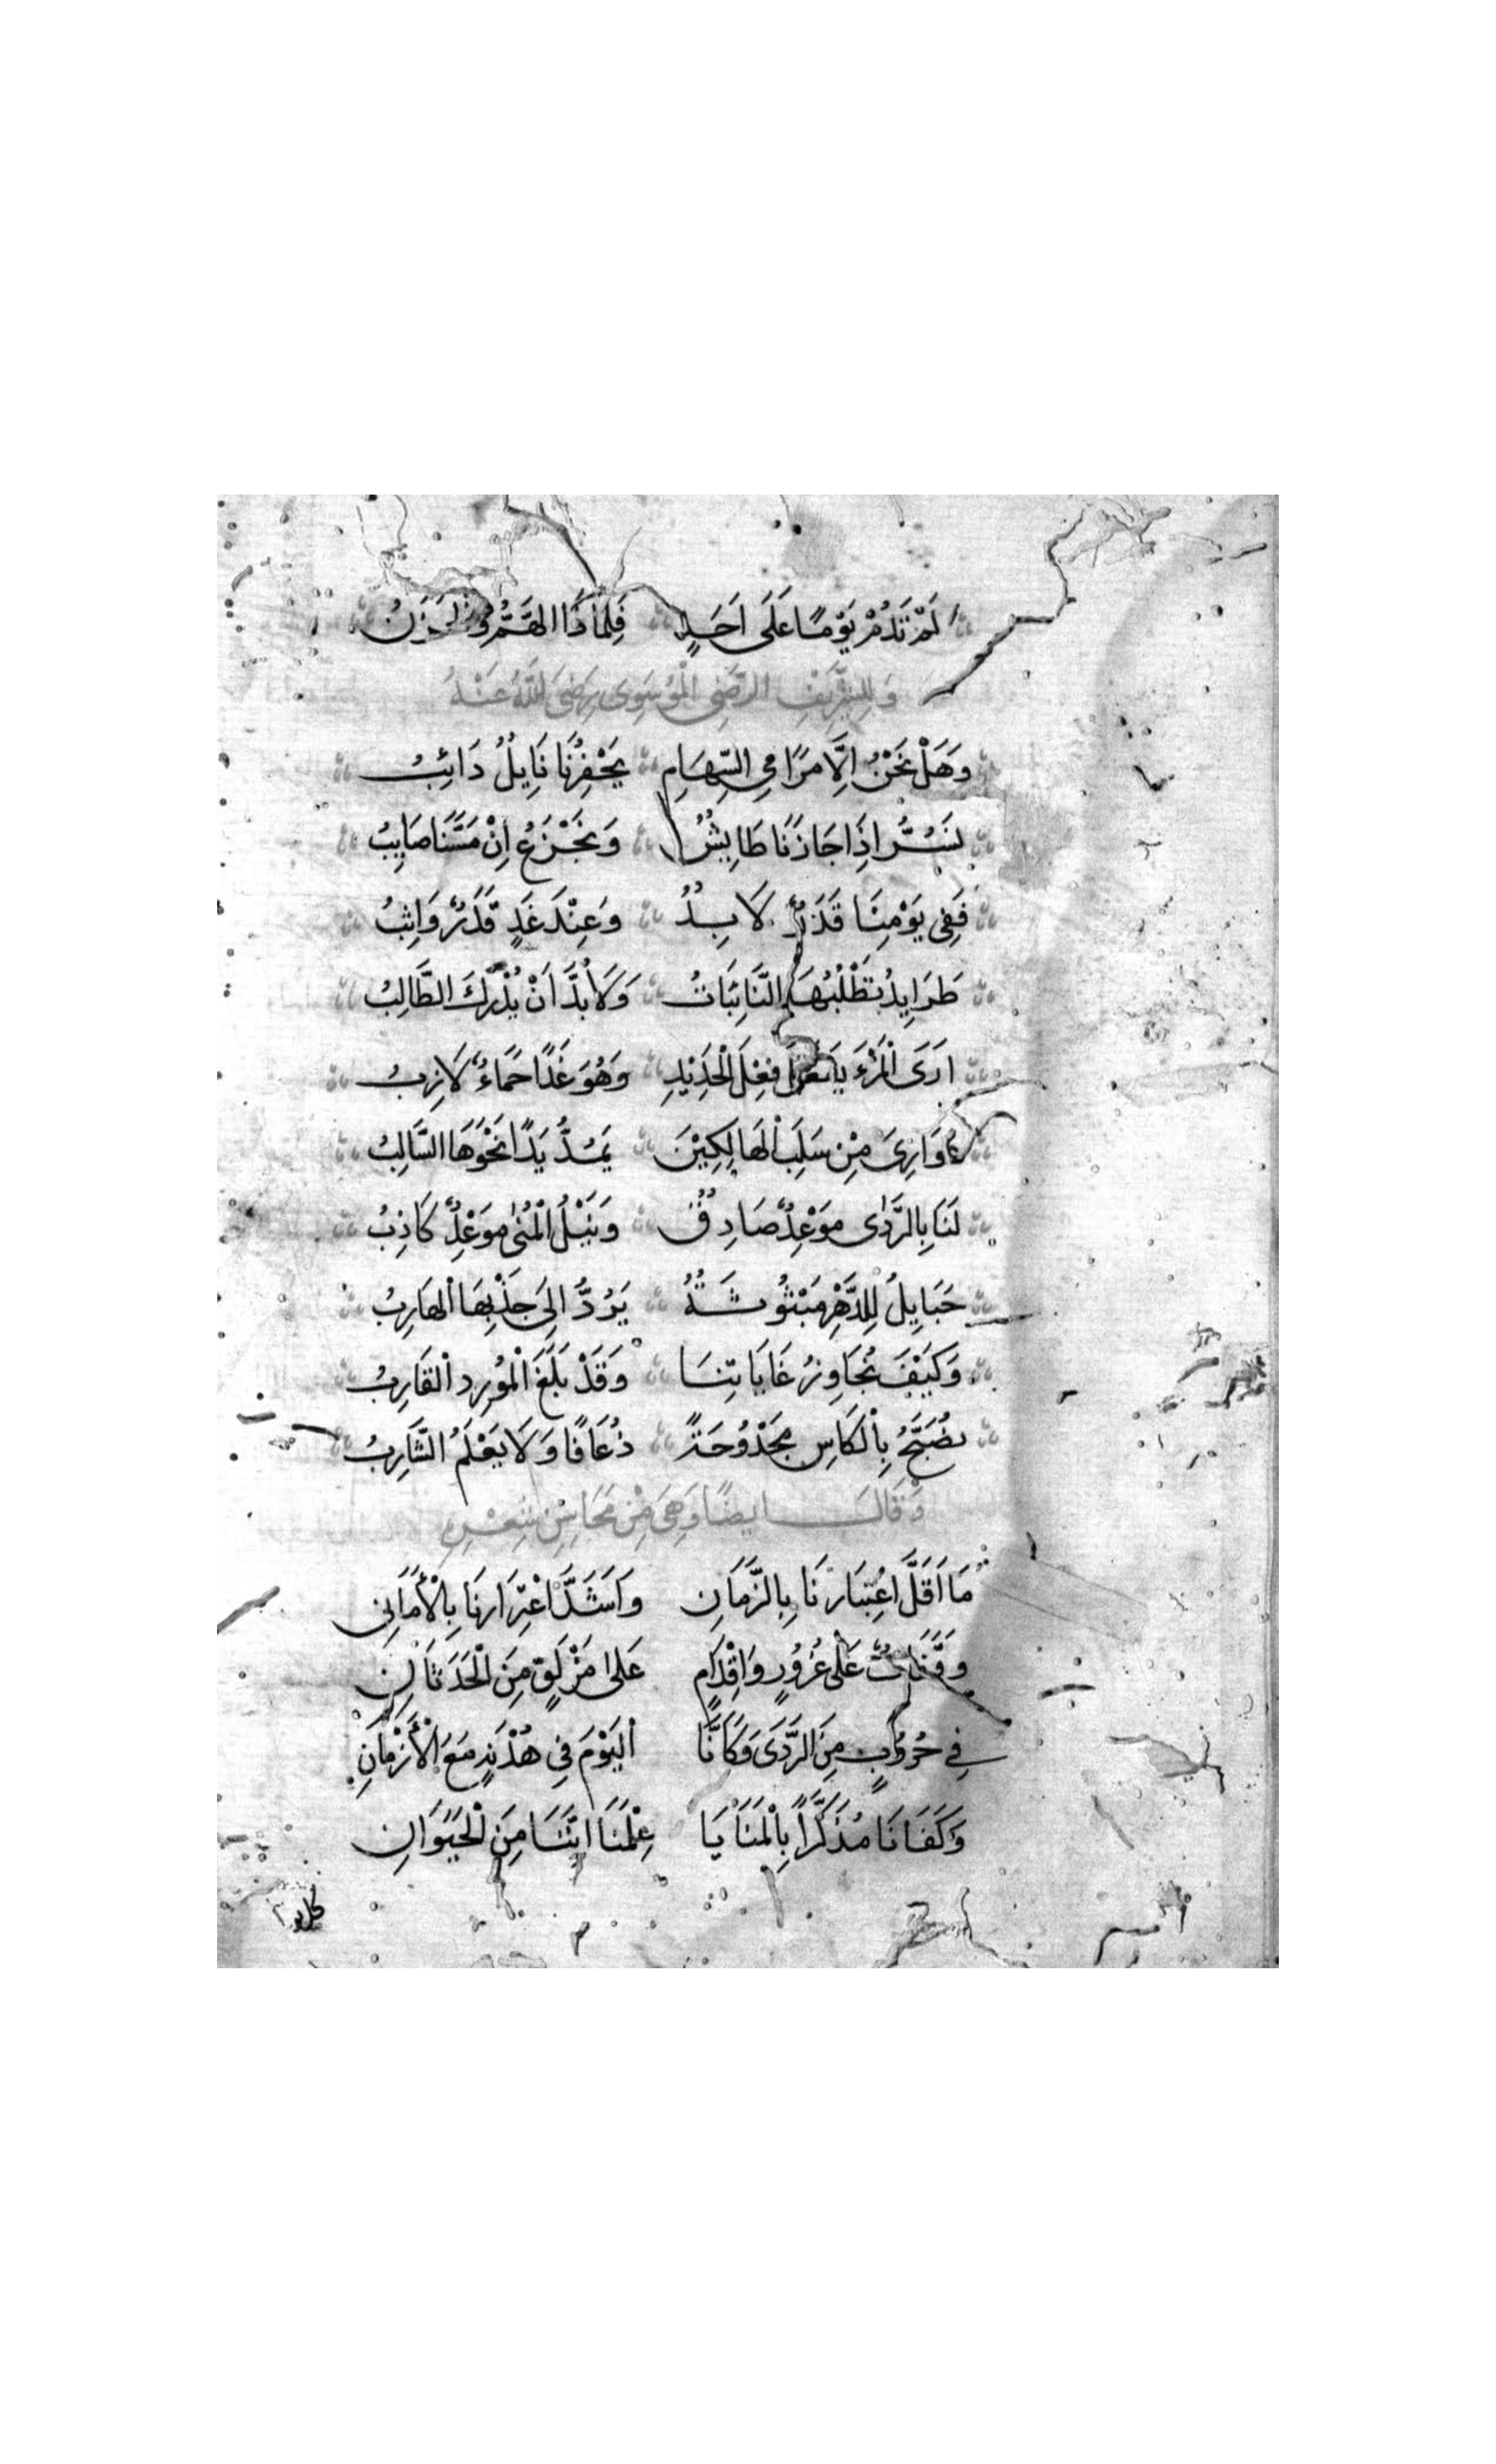 لَمْ تَدُمْ يَوْمًا عَلَى اَحَدٍ فَلِمَاذَا الهَمُّ وَالحَزَنُ
وَلِلشَّرِيْفِ الرَّضِى الْمُوْسَوِى رَضِىَ اللّٰهُ عَنْهُ
وَهَلْ نَحْنُ اِلَّا مَرَامِي السِّهَامِ يَحْفِزُنَا نَابِلٌ دَائِبُ
نُسَرُّ اِذَا جَازَنَا طَايِشٌ وَنَجْزَعُ اِنْ مَسَّنَا صَايِبُ
فَفِى يَوْمِنَا قَدَرٌ لَابِدٌ وَعِنْدَ غَدٍ قَدَرٌ وَاثِبُ
طَرَايِدُ تَطْلُبُهَا النَّائِبَاتُ وَلَابُدَّ اَنْ يُدْرِكَ الطَّالِبُ
اَرَى الْمَرْءَ يَفعَلُ فِعْلَ الْحَدِيْدِ وَهُوَ غَدًا حَمَاءٌ لَازِبُ
عَوَارِىَ مِنْ سَلَبِ الْهَالِكِيْنَ يَمُدُّ يَدًا نَحْوَهَا السَّالِبُ
لَنَا بِالرَّدٰى مَوْعِدٌ صَادِقٌ وَنَيْلُ الْمُنٰى مَوْعِدٌ كَاذِبُ
حَبَايِلُ لِلدَّهْرِ مَبْثُوثَةٌ يَرُدُّ اِلَى جَذْبِهَا الْهَارِبُ
وَكَيْفَ نُجَاوِزُ غَايَاتِنَا وَقَدْ بَلَغَ الْمُوْرِدَ الْقَارِبُ
نُصَبَّحُ بِالْكَاسِ مَجْدُوْحَةً ذُعَافًا وَلَا يَعْلَمُ الشَّارِبُ
وَقَالَ ايضًا وَهِىَ مِنْ مَحَاسِنِ شِعْرِهِ
مَا اَقَلَّ اعْتِبَارَنَا بِالزَّمَانِ وَاَشَدَّ اغْتِرَارَنَا بِالْأَمَانِى
وَقَفَاتٌ عَلٰى غُرُوْرٍ وَاِقْدَامٍ عَلٰى مَزْلَقٍ مِنَ الْحَدَثَانِ
فِي حُرُوْبٍ مِنَ الرَّدَى وَكَاَنَّا الْيَوْمَ فِي هُدْنَةٍ مَعَ الْأَزْمَانِ
وَكَفَانَا مُذَكِّرًا بِالْمَنَايَا عِلْمَنَا اَنَّنَا مِنَ الْحَيَوَانِ